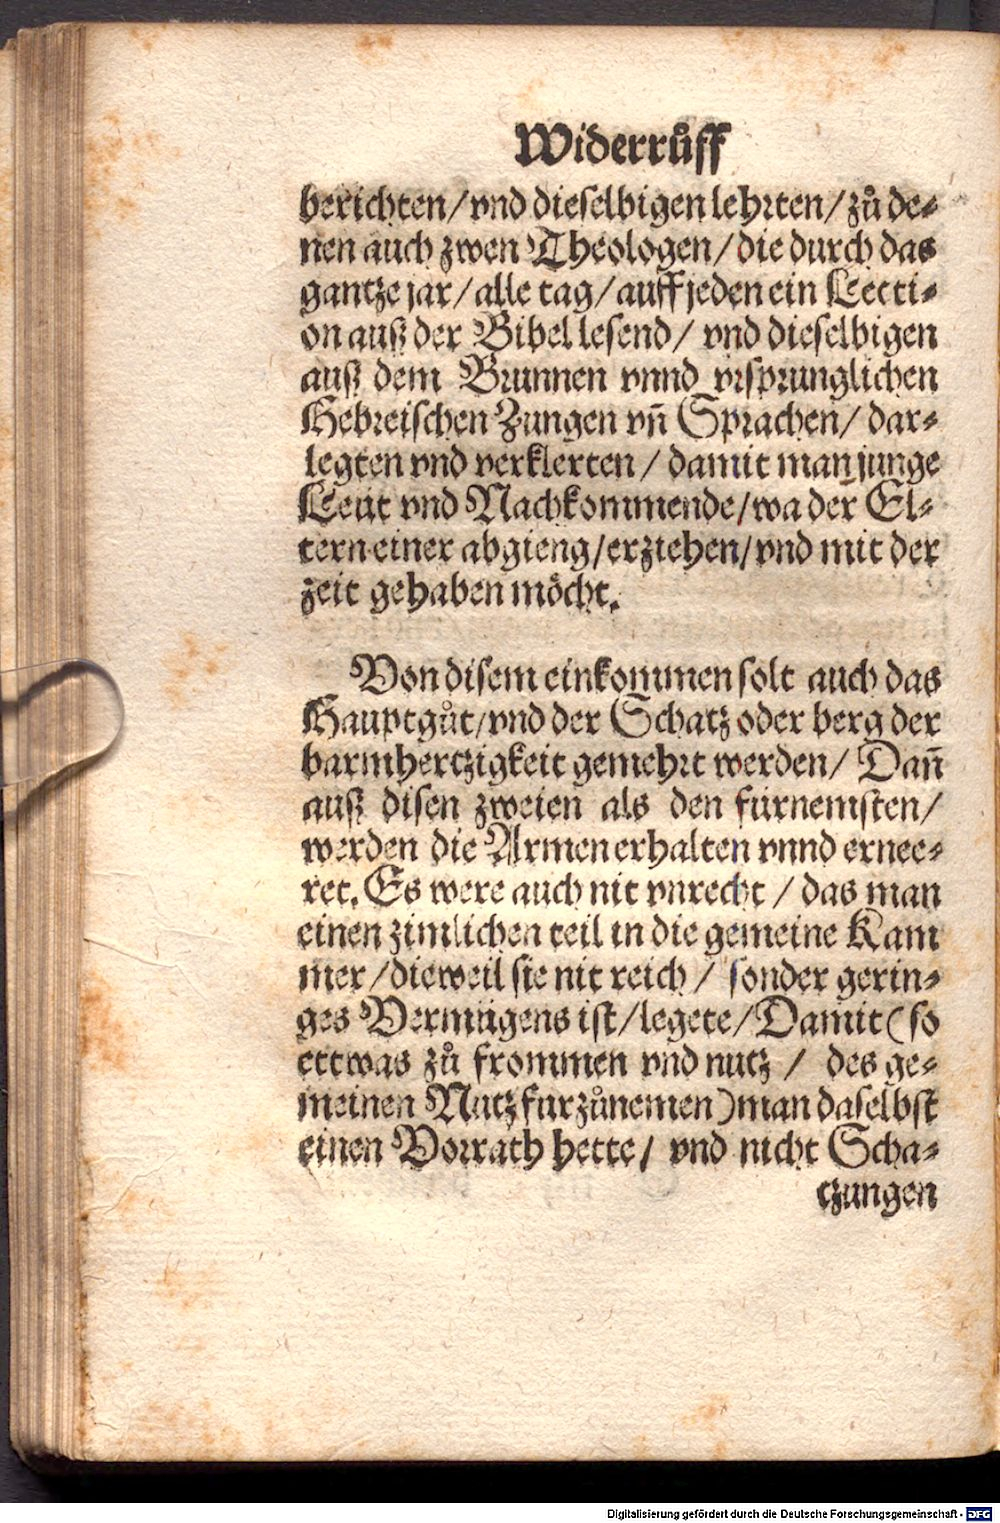 Widerrůff
berichten/vnd dieselbigen lehrten/zů de⸗
nen auch zwen Theologen/die durch das
gantze jar/alle tag/auff jeden ein Lecti⸗
on auß der Bibel lesend/ vnd dieselbigen
auß dem Brunnen vnnd vrsprunglichen
Hebreischen Zungen vñ Sprachen/ dar⸗
legten vnd verklerten/ damit man junge
Leüt vnd Nachkommende/wa der El⸗
tern einer abgieng/erziehen/vnd mit der
zeit gehaben möcht.
Von disem einkommen solt auch das
Hauptgůt/vnd der Schatz oder berg der
barmhertzigkeit gemehrt werden/ Dañ
auß disen zweien als den fürnemsten/
werden die Armen erhalten vnnd ernee⸗
ret. Es were auch nit vnrecht/ das man
einen zimlichen teil in die gemeine Kam
mer/dieweil sie nit reich/ sonder gerin⸗
ges Vermügens ist/legete/Damit (so
ettwas zů frommen vnd nutz/ des ge⸗
meinen Nutz fürzůnemen) man daselbst
einen Vorrath hette/ vnd nicht Scha⸗
tzungen
Digitalisierung gefördert durch die Deutsche Forschungsgemeinschaft - DFG